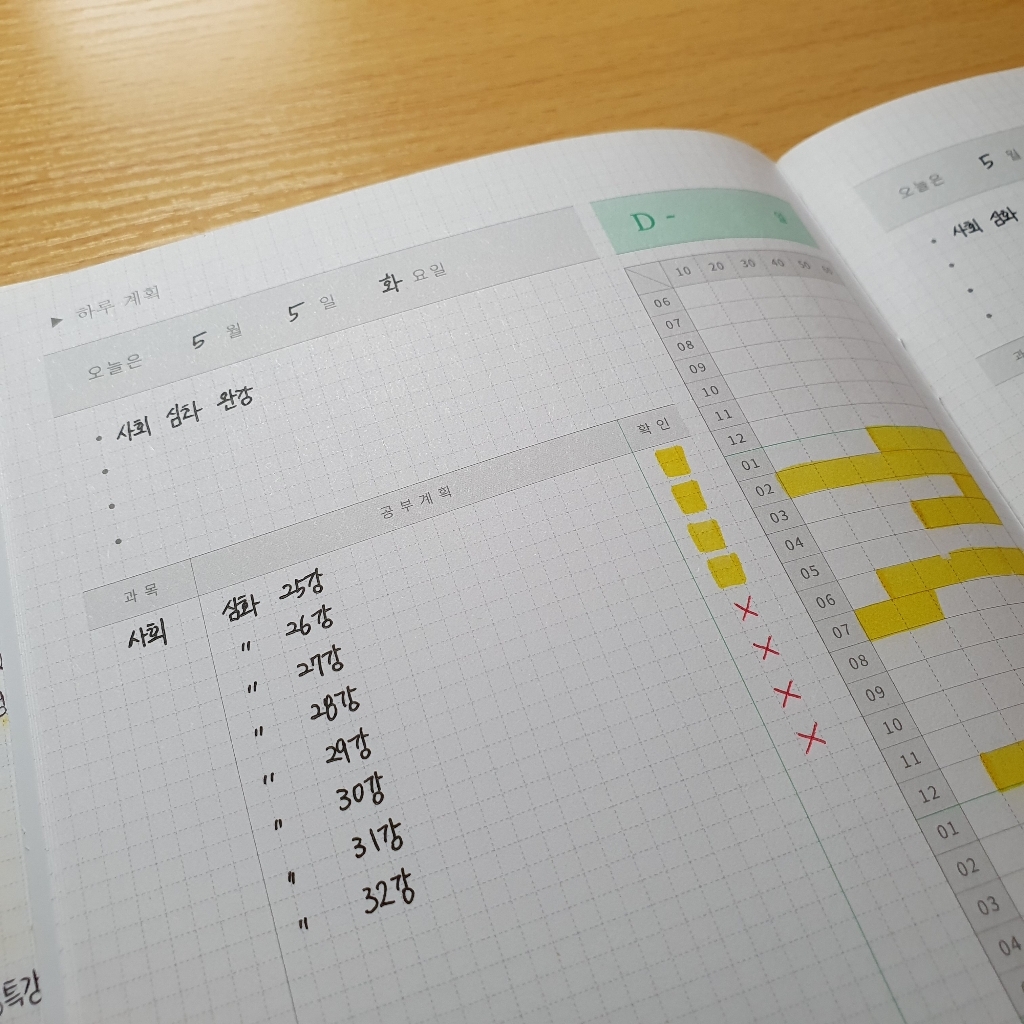 ▶ 하루 계획
오늘은 5 월 5 일 화 요일
• 사회 심화 완강
•
•
•
과목 공부계획 확인
사회 심화 25강
" 26강
" 27강
" 28강
" 29강
" 30강
" 31강
" 32강
D - 일
10 20 30 40 50
06
07
08
09
10
11
12
01
02
03
04
05
06
07
08
09
10
11
12
01
02
03
04
오늘은 5 월
• 사회 심화
•
•
•
특강